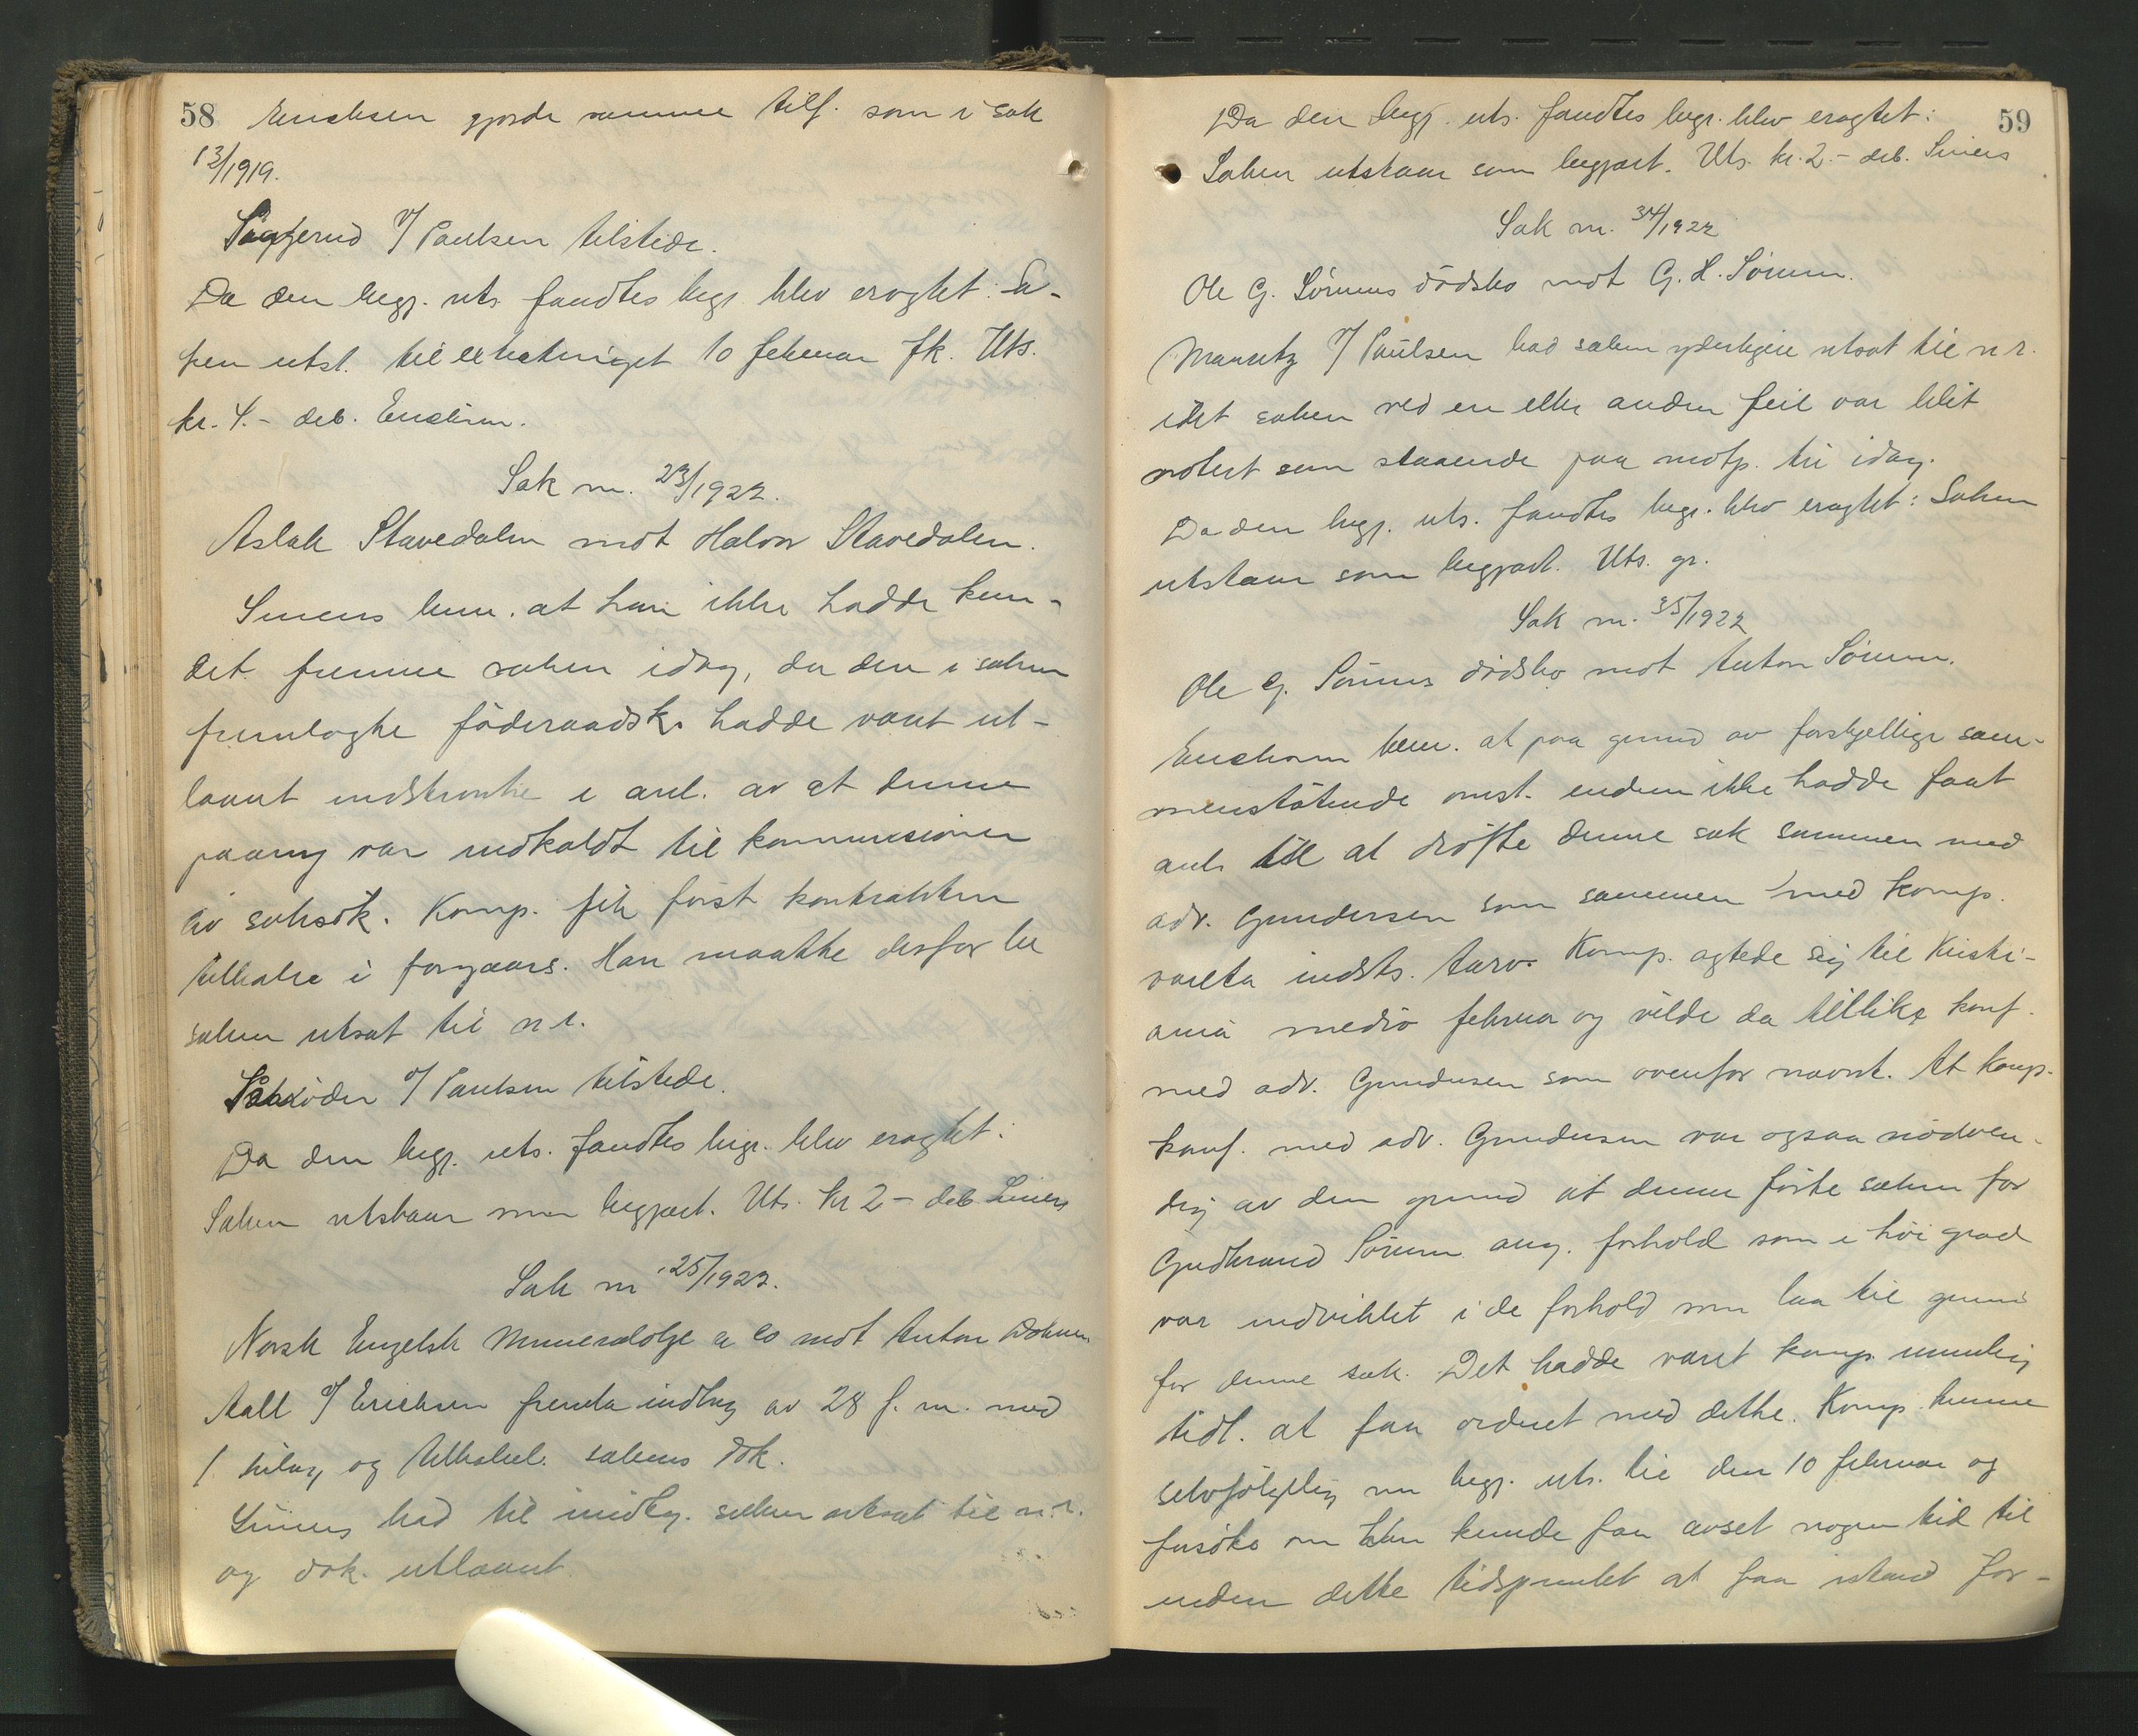 58 Erichsen gjorde samme tilf. som i sak
13/1919.
Saggerud v/ Paulsen tilstede.
Da den begj. uts. fandtes begr. blev eragtet: Sa-
ken utst. til extratinget 10 februar fk. Uts.
kr. 4.- deb. Erichsen.
Sak nr. 23/1922.
Aslak Stavedalen mot Halvor Stavedalen.
Simers bem. at han ikke hadde kun-
det fremme saken idag, da den i saken
fremlagte föderaadsk. hadde vært ut-
laant indstevnte i anl. av at denne
paany var indkaldt til kommissionen
av saksök. Komp. fik först kontrakten
tilbake i forgaars. Han maatte derfor be
saken utsat til n.r.
Schröder v/ Paulsen tilstede.
Da den begj. uts. fandtes begr. blev eragtet:
Saken utstaar som begjært. Uts. kr 2 - deb Simers
Sak nr 25/1922.
Norsk Engelsk Mineralolje a co mot Anton
Aall v/ Erichsen fremla indlæg av 28 f. m. med
1 bilag og tilbakel. sakens dok.
Simers bad til indlæg. saken utsat til n.r.
og dok. utlaant.
59
Da den begj. uts. fandtes begr. blev eragtet:
Saken utstaar som begjært. Uts. kr. 2.- deb. Simers
Sak nr. 34/1922
Ole G. Sörums dödsbo mot G. H. Sörum.
Mauritz v/ Paulsen bad saken yderligere utsat til n.r.
idet saken ved en eller anden feil var blit
notert som staaende paa motp. til idag.
Da den begj. uts. fandtes begr. blev eragtet: Saken
utstaar som begjært. Uts. gr.
Sak nr. 35/1922
Ole G. Sörums dödsbo mot Anton Sörum.
Erichsen bem. at paa grund av forskjellige sam-
menstötende omst. endnu ikke hadde faat
anl. til at dröfte denne sak sammen med
adv. Gundersen som sammen med komp.
varetar indsts. tarv. Komp. agtede sig til Kristi-
ania medio februar og vilde da tillike konf.
med adv. Gundersen som ovenfor nævnt. At komp.
konf. med adv. Gundersen var ogsaa nödven-
dig av den grund at denne förte saken for
Gudbrand Sörum ang. forhold som i höi grad
var indviklet i de forhold som laa til grund
for denne sak. Det hadde været komp. umulig
tidl. at faa ordnet med dette. Komp. kunne
selvfölgelig nu begj. uts. til den 10 februar og
forsöke om han kunde faa avset nogen tid til
inden dette tidspunktet at faa istand for-